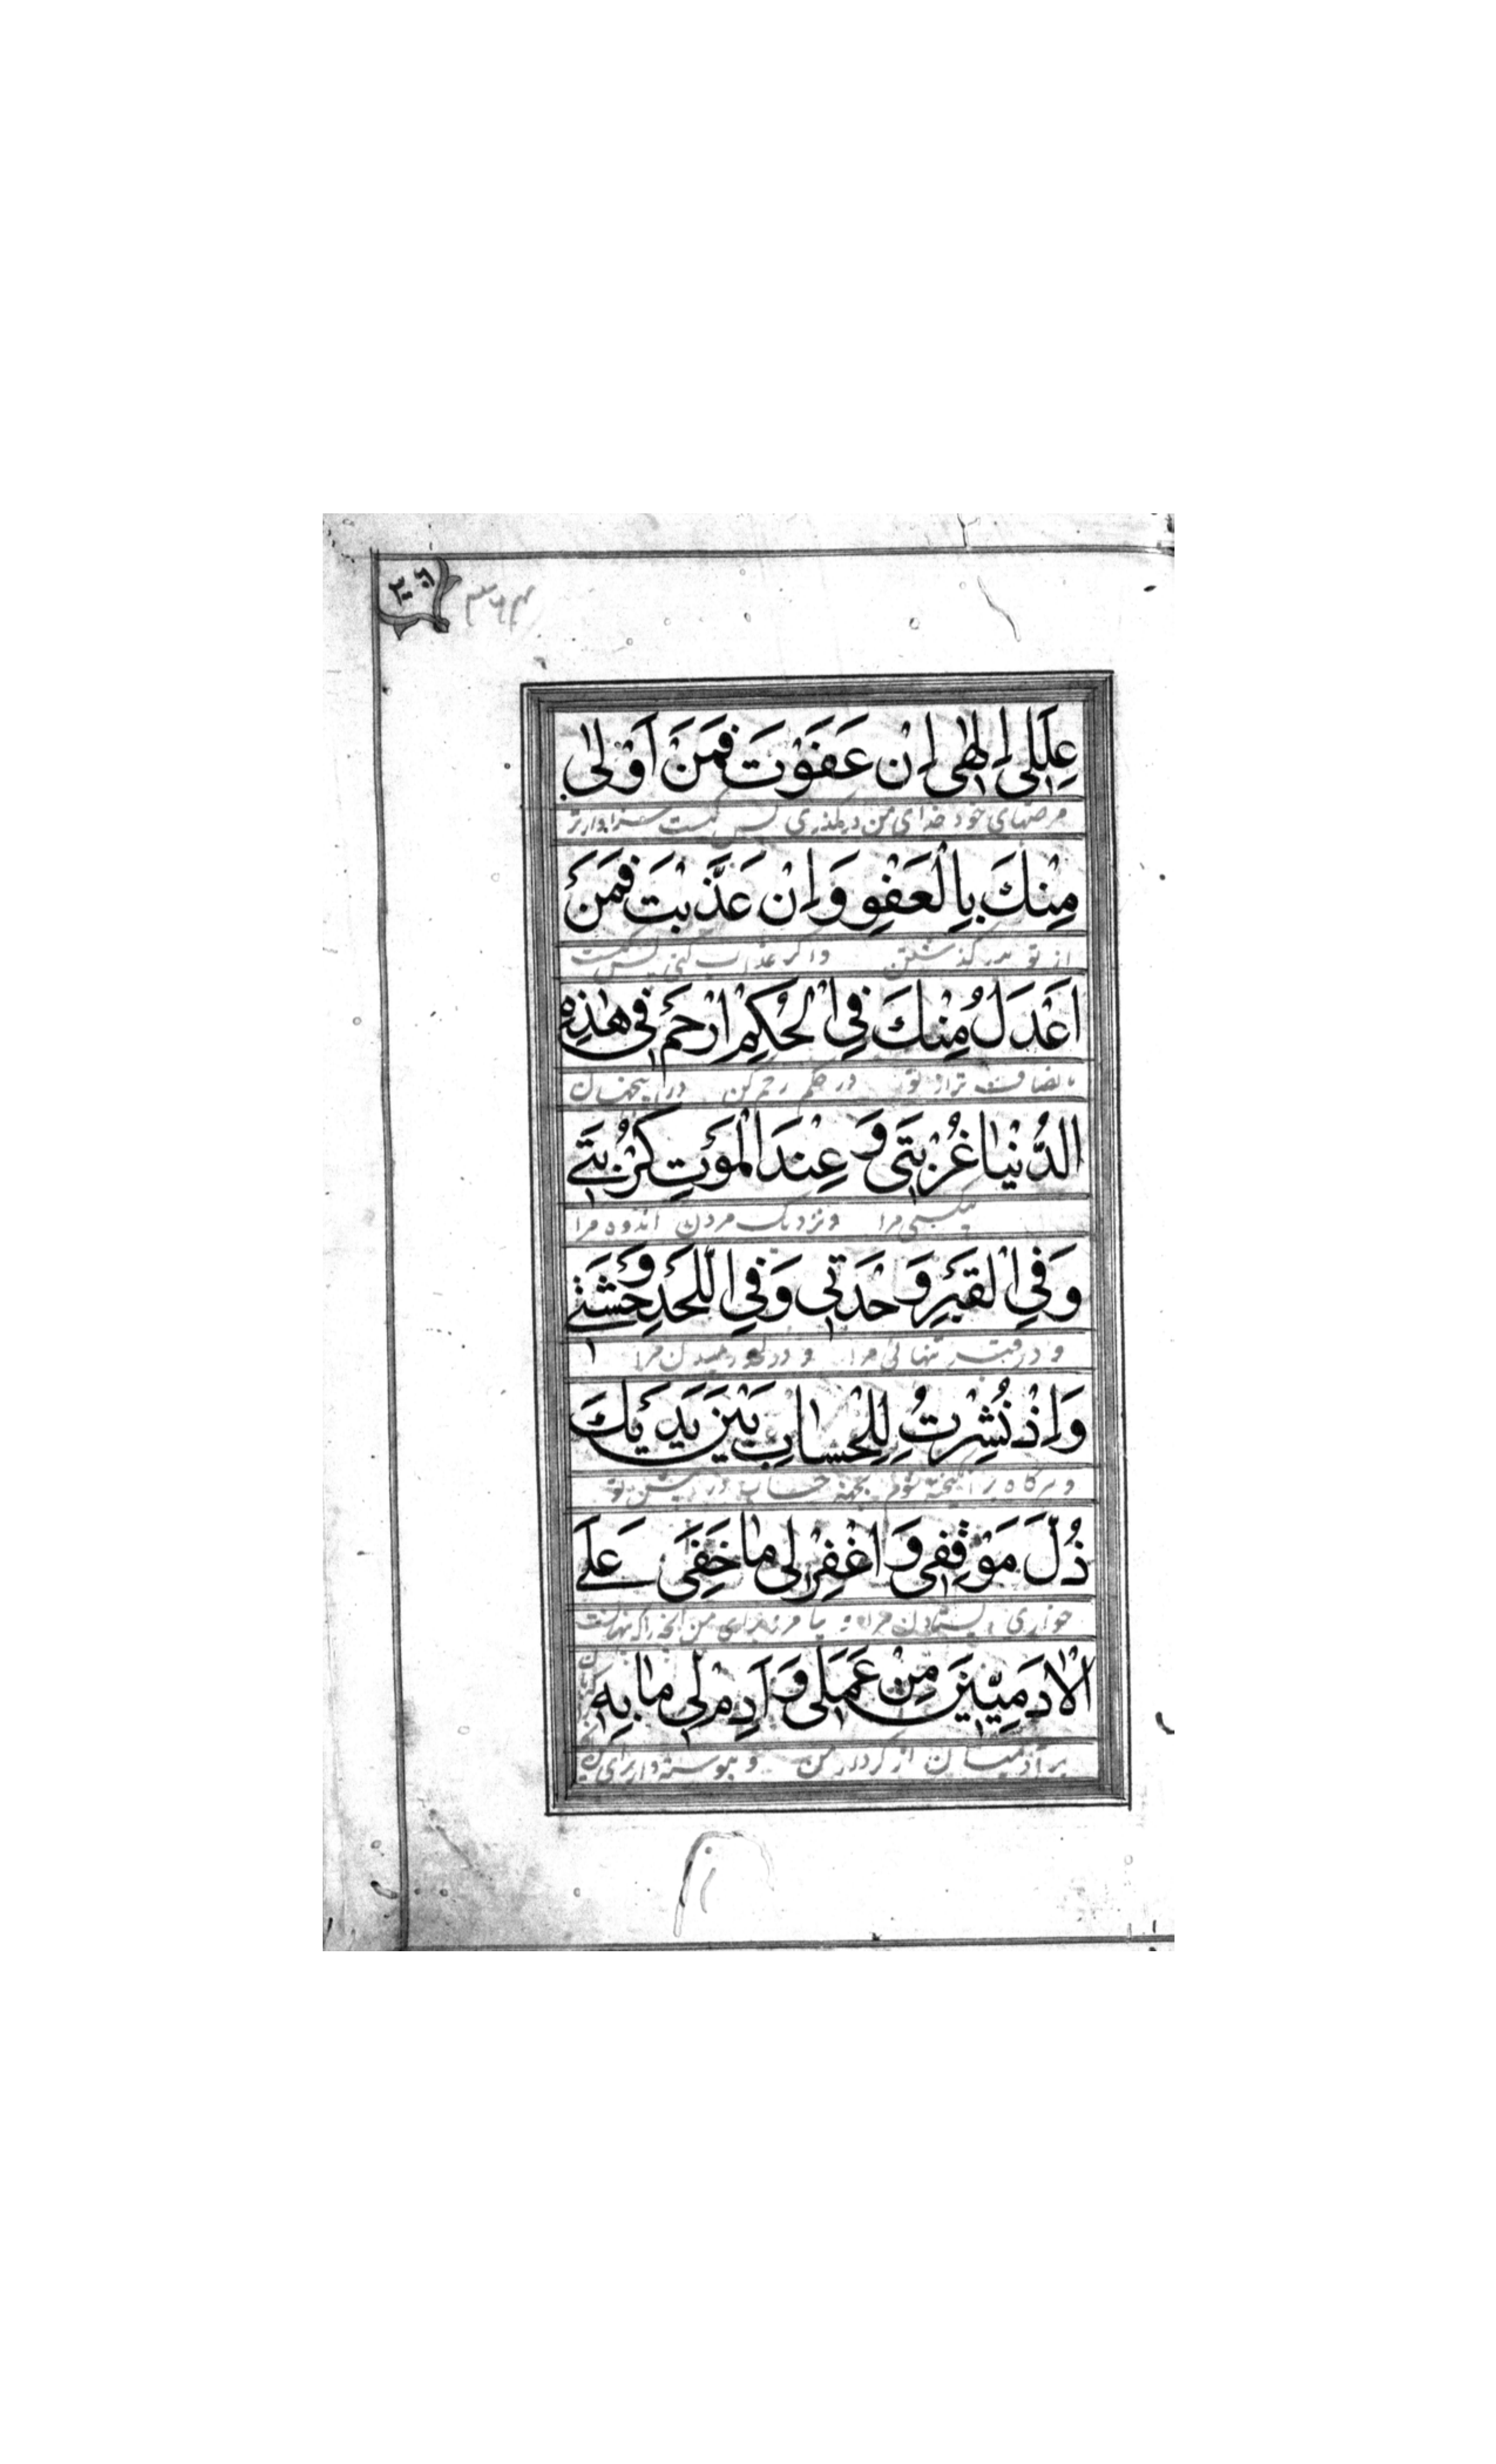 عِلَلِی اِلٰهٖی اِنْ عَفَوْتَ فَمَنْ اَوْلٰی
مرضهای خود خدای من درگذری پس کیست سزاوارتر
مِنْكَ بِالْعَفْوِ وَ اِنْ عَذَّبْتَ فَمَنْ
از تو بدر گذشتن و اگر عذاب کنی پس کیست
اَعْدَلُ مِنْكَ فِی الْحُكْمِ اِرْحَمْ فٖی هٰذِهِ
در حکم رحم کن در اینجهان
الدُّنْیٰا غُرْبَتٖی وَ عِنْدَ الْمَوْتِ كُرْبَتٖے
بیکسی مرا و نزدیک مردن اندوه مرا
وَ فِی الْقَبْرِ وَحْدَتٖی وَ فِی اللَّحْدِ وَحْشَتٖے
و در قبر تنهائی مرا و در لحد رمیدن مرا
وَ اِذٰ نُشِرْتُ لِلْحِسٰابِ بَیْنَ یَدَیْكَ
و هرگاه برانگیخته شوم بجهة حساب در پیش تو
ذُلَّ مَوْقِفٖی وَ اغْفِرْ لٖی مٰا خَفِیَ عَلَے
خواری ایستادن مرا و بیامرز برای من آنچه را که نهانست
الْاٰدَمِیّٖینَ مِنْ عَمَلٖی وَ اَدِمْ لٖی مٰا بِهٖ
بر آدمیان از کردار من و پیوسته دار برای من